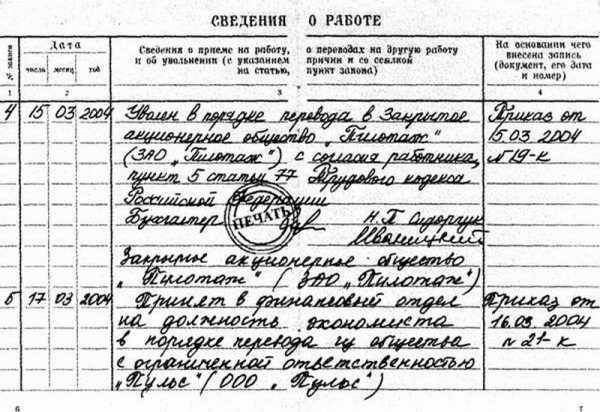 СВЕДЕНИЯ О РАБОТЕ
№ записи
Дата
Сведения о приеме на работу, о переводах на другую работу
и об увольнении (с указанием причин и со ссылкой
на статью, пункт закона)
На основании чего
внесена запись
(документ, его дата
и номер)
число месяц год
1 2 3 4
4 15 03 2004 Уволен в порядке перевода в Закрытое Приказ от
акционерное общество „Пилотаж" 15.03 2004
(ЗАО „Пилотаж") с согласия работника, №19-к
пункт 5 статьи 77 Трудового кодекса
Российской Федерации
Бухгалтер Н.П. Сидорчук
ПЕЧАТЬ
Закрытое акционерное общество
„Пилотаж" (ЗАО „Пилотаж")
5 17 03 2004 Принят в финансовый отдел Приказ от
на должность экономиста 16.03. 2004
в порядке перевода из общества №21-к
с ограниченной ответственностью
„Пульс" (ООО „Пульс")
6 7